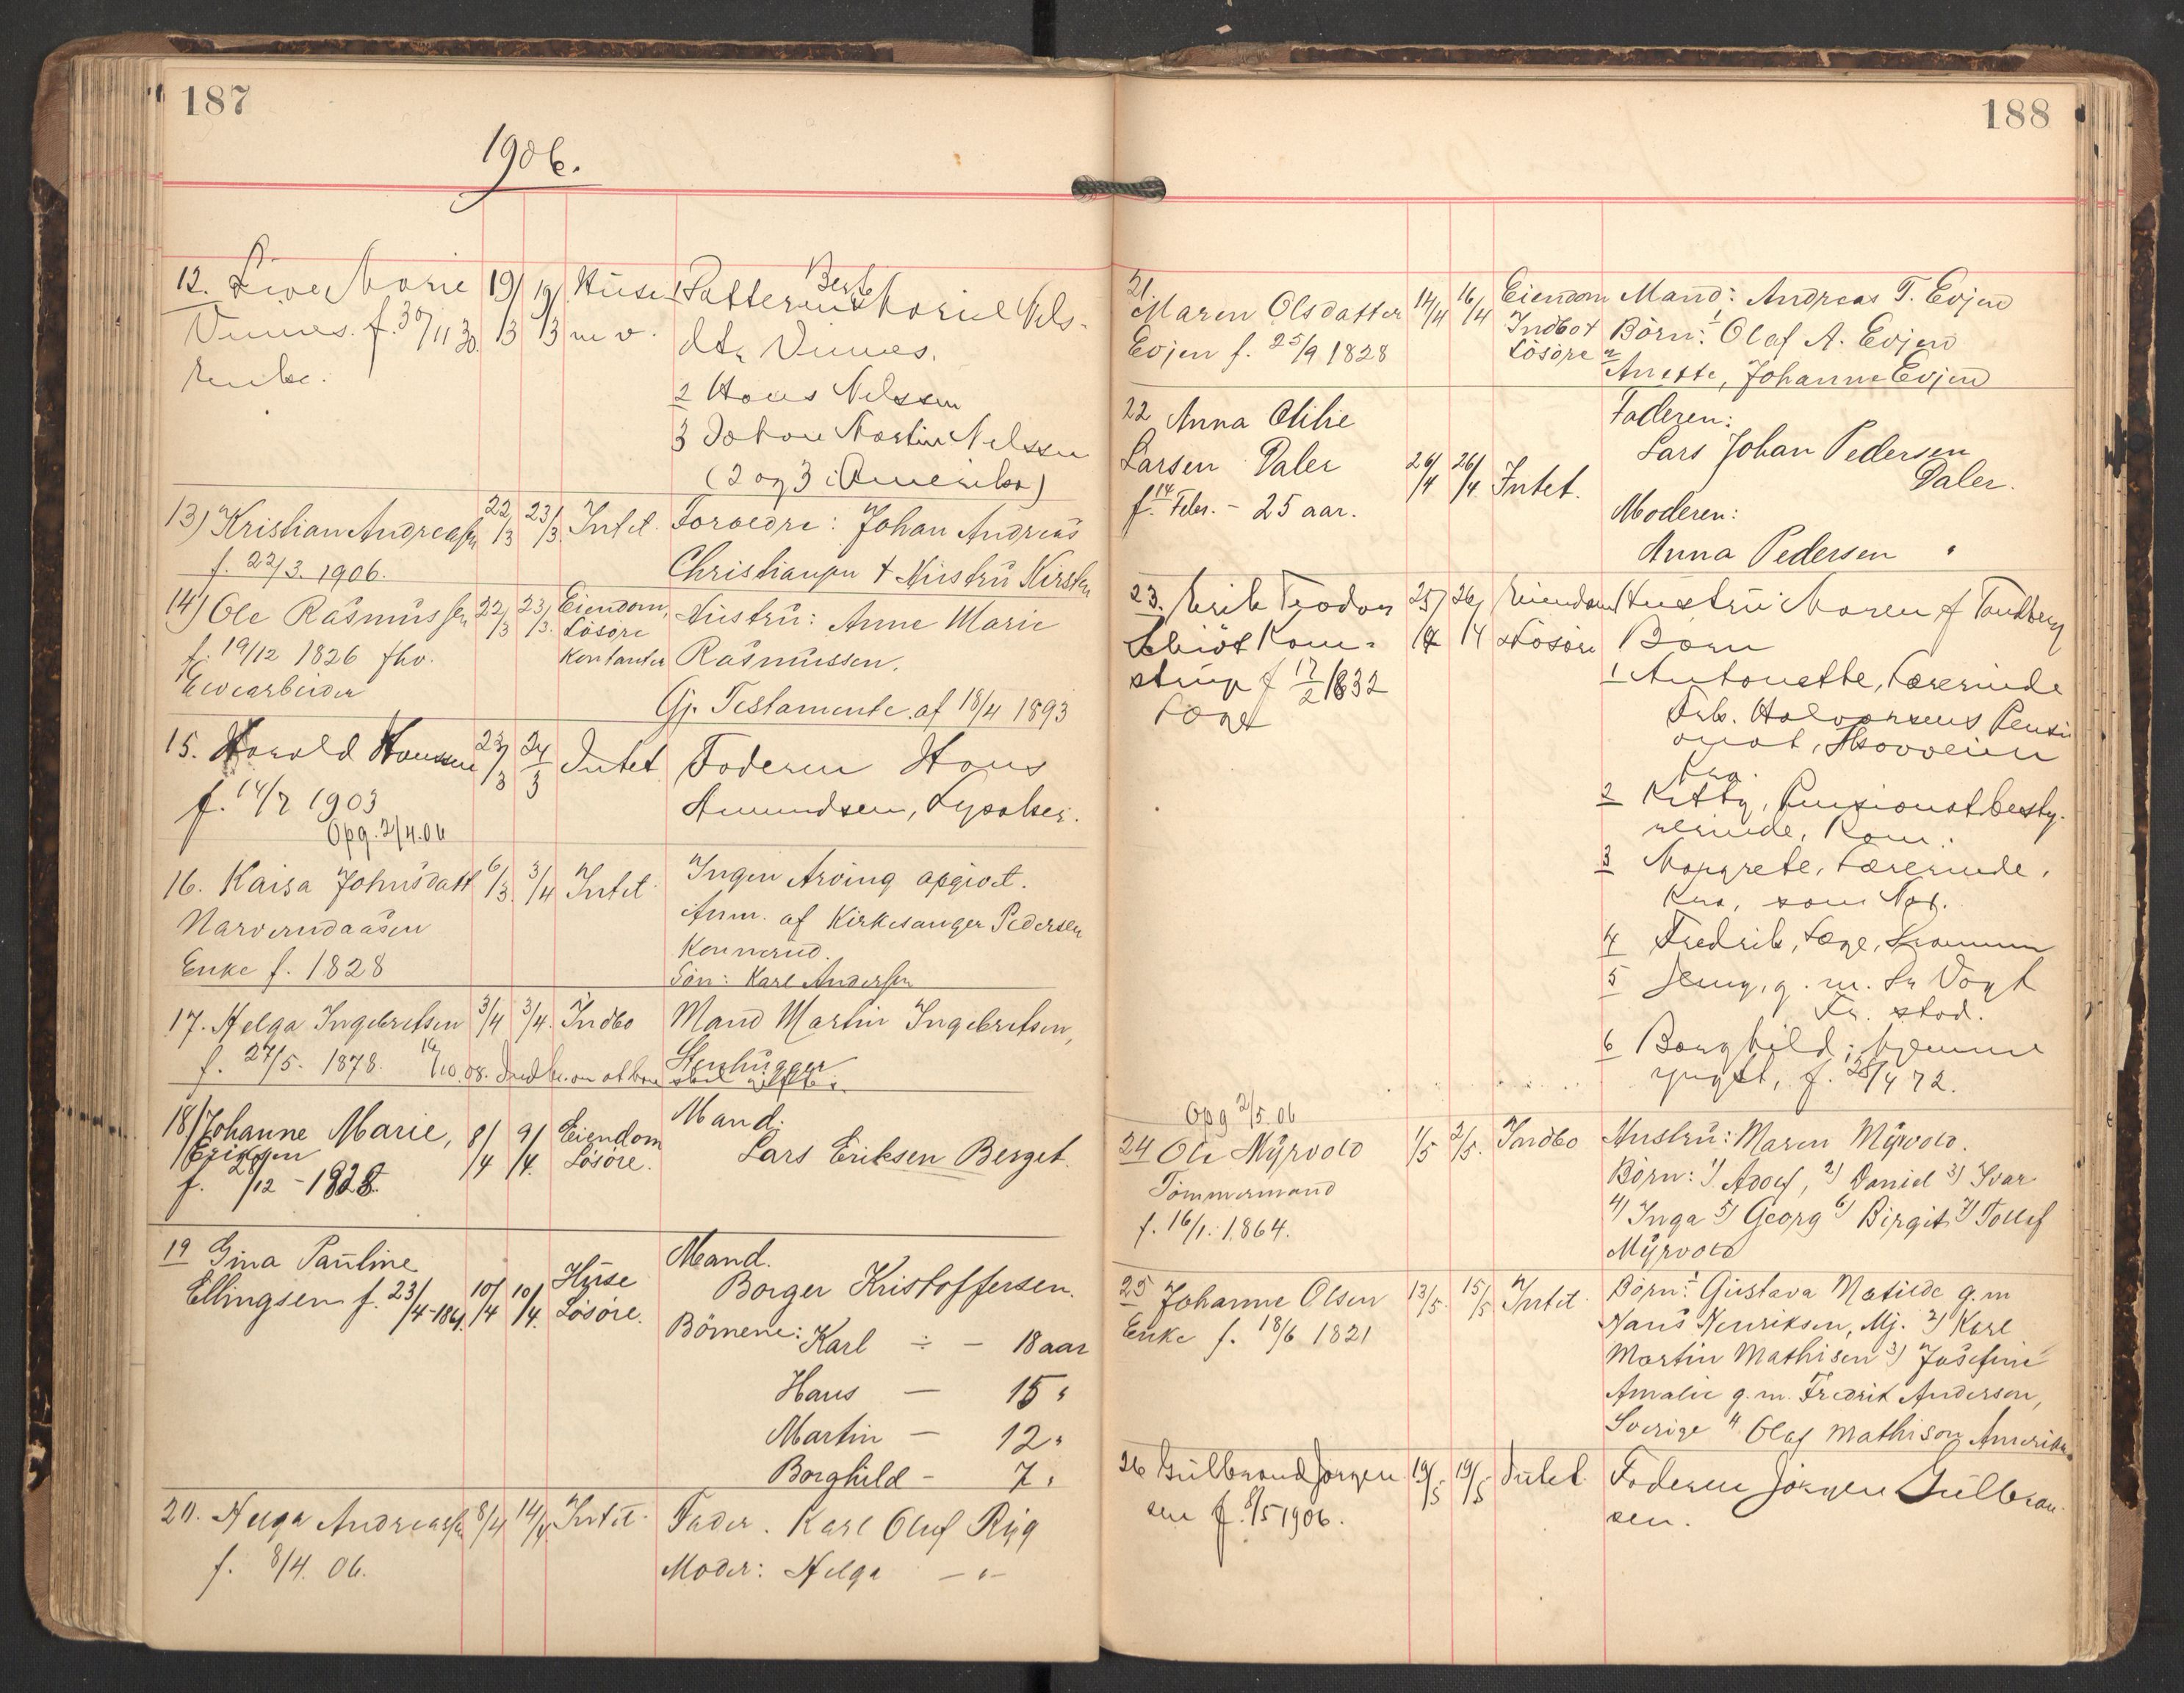 187
1906.
12. Live Marie 19/3 19/3 Huse
Vinnes. f. 30/11 30. m v.
Enke.
1 Datteren Berte Marie Nels-
dtr Vinnes.
2 Hans Nelssen
3 Johan Martin Nelssen
(2 og 3 i Amerika)
13) Kristian Andreassen 22/3 23/3. Intet. Foræedre: Johan Andreas
f. 22/3. 1906. Christiansen + Hustru Kirsten
14) Ole Rasmussen 22/3 23/3. Eiendom, Hustru: Anne Marie
f. 19/12 1826 fhv. Lösöre Rasmussen.
Elvearbeider Kontanter Gj. Testamente af 18/4 1893
15. Harald Hansen 23/3 24/3 Intet Faderen Hans
f. 14/7 1903 Amundsen, Lysaker.
Opg. 2/4.06
16. Kaisa Johnsdatt 6/3. 3/4 Intet. Ingen Arving opgivet.
Narverudaasen Anm. af Kirkesanger Pedersen
Konnerud.
Enke f. 1828 Sön: Karl Andersen
17. Helga Ingebretsen 3/4 3/4. Indbo Mand Martin Ingebretsen,
f. 27/5. 1878. Stenhugger
18/ Johanne Marie, 8/4 9/4. Eiendom Mand.
Eriksen Lösöre. Lars Eriksen Berget.
f. 28/12 - 1828.
19 Gina Pauline Mand.
Ellingsen f. 23/4-1861. 10/4 10/4. Huse Borger Kristoffersen.
Lösöre. Börnene: Karl ÷ - 18 aar
Hans — 15 "
Martin — 12 "
Borghild - 7 "
20. Helga Andreassen 8/4 14/4. Intet. Fader. Karl Oluf Ryg
f. 8/4. 06. Moder: Helga — " —
188
21
Maren Olsdatter 14/4 16/4 Eiendom Mand: Andreas T. Evjen
Evjen f. 25/9 1828 Indbo + Börn: 1 Olaf A. Evjen
Lösöre 2 Anette, Johanne Evjen
22 Anna Otilie Faderen:
Larsen Daler 26/4 26/4 Intet. Lars Johan Pedersen
Daler.
f. 14 Febr. - 25 aar. Moderen:
Anna Pedersen "
23. Erik Teodor 25/4 26/4 Eiendom Hustru Maren f Tandberg
Schiöt Kom- + Lösöre Börn
strup f 17/2 1832 1 Antonette, Lærerinde
Læge Frk. Halvorsens Pensi
onat,
Kra.
2 Kitty, Pensionatbesty-
rerinde, Rom.
3 Margrete, Lærerinde,
Kra, som No 1.
4 Fredrik, Læge, Drammen
5 Jenny, g. m. Dr Vogt
Fr. stad.
6 Borghild, hjemme
yngst, f. 28/4 72.
Opg 2/5.06
24 Ole Myrvold 1/5 2/5. Indbo Hustru: Maren Myrvold.
Tömmermand Börn: 1) Adolf, 2) Daniel 3) Ivar
f. 16/1. 1864. 4) Inga 5) Georg 6) Birgit 7) Tollef
Myrvold
25 Johanne Olsen 13/5. 15/5 Intet. Börn: 1 Gustava Matilde g.m
Enke f. 18/6 1821 Hans Henriksen, Mj. 2) Karl
Martin Mathisen 3) Josefine
Amalie g.m. Fredrik Anderson,
Sverige 4 Olaf Mathison Amerika
26 Gulbrand Jörgen 19/5 19/5 Intet. Faderen Jörgen Gulbran
sen f. 8/5 1906. sen.